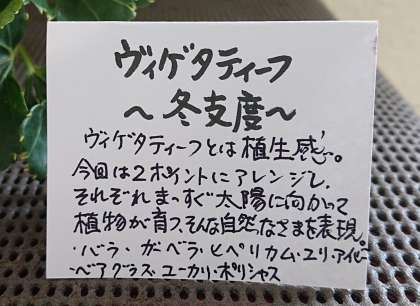 ヴィゲタティーフ
～冬支度～
ヴィゲタティーフとは植生感。
今回は2ポイントにアレンジし、
それぞれまっすぐ太陽に向かって
植物が育つ、そんな自然なさまを表現。
・バラ・ガーベラ・ヒペリカム・ユリ・アイビー
・ベアグラス・ユーカリ・ポリシャス